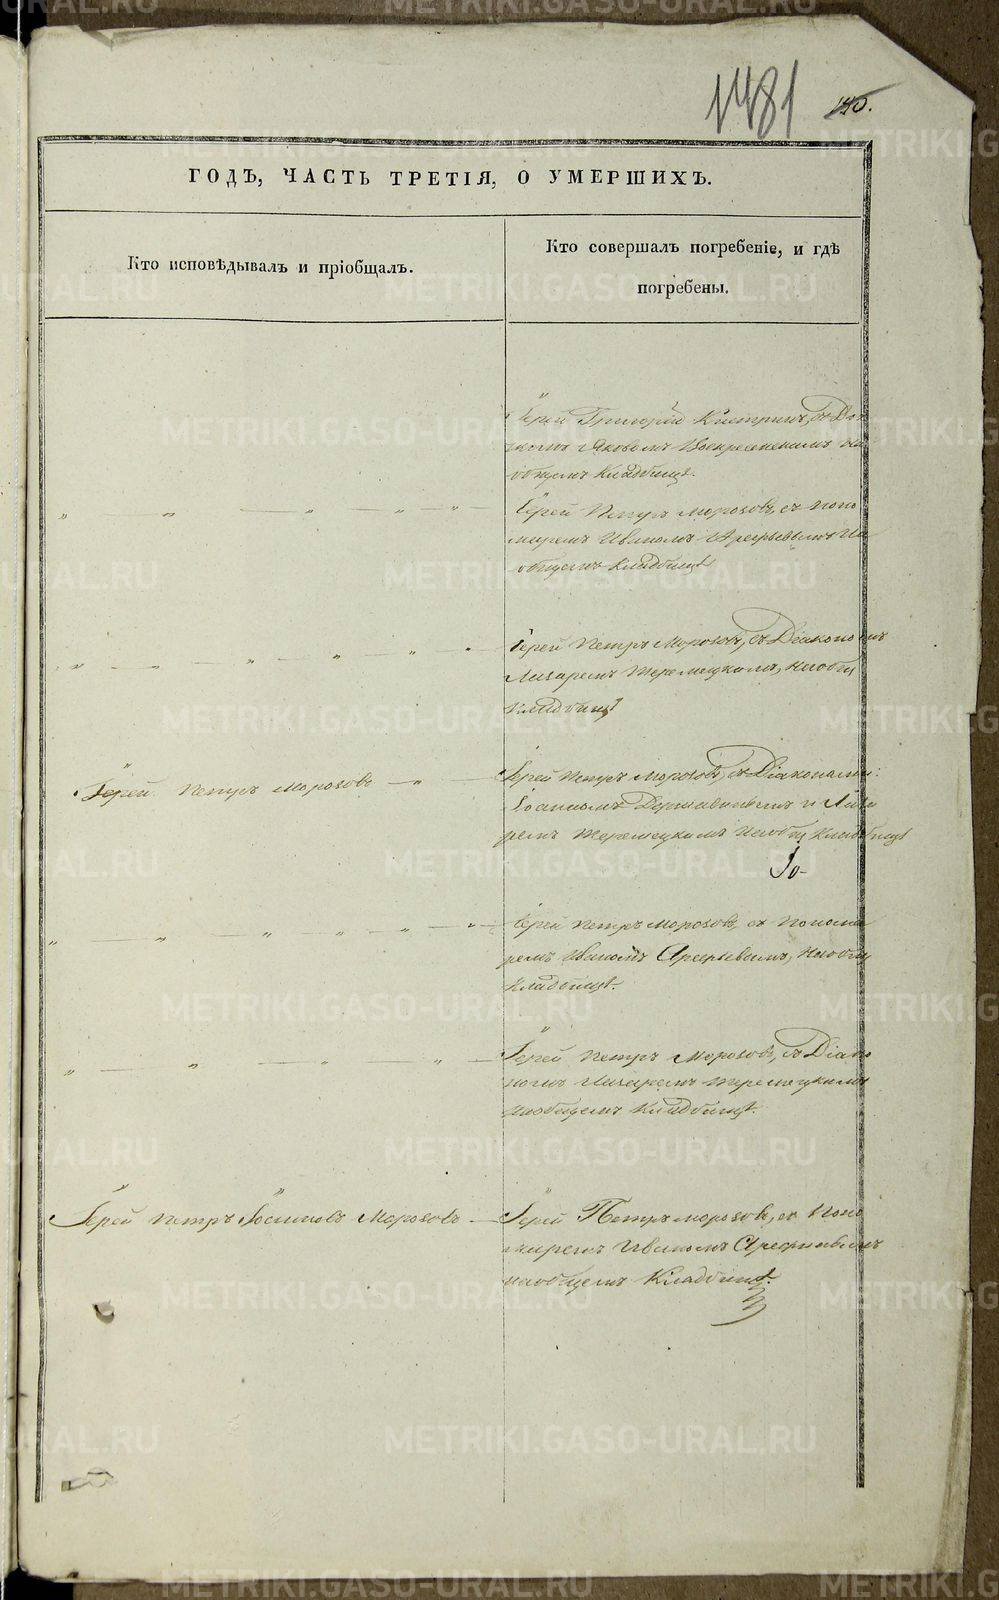 1481 140.
ГОДЪ, ЧАСТЬ ТРЕТІЯ, О УМЕРШИХЪ.
Кто исповѣдывалъ и пріобщалъ.
Кто совершалъ погребеніе, и гдѣ
погребены.
Іерей Григорій съ Діа
кономъ Яковомъ Воскресенскимъ на
общемъ Кладбищѣ.
Іерей Петръ Морозовъ, съ поно
маремъ Иваномъ Арефьевымъ на
общемъ Кладбищѣ
Іерей Петръ Морозовъ, съ Діакономъ
Лазаремъ Теремецкимъ, на общ
Кладбищѣ
Іерей Петръ Морозовъ
Іерей Петръ Морозовъ, съ Діаконами:
Іоанномъ и Лаза
ремъ Теремецкимъ на общ Кладбищѣ
Іерей Петръ Морозовъ, съ Понома
ремъ Иваномъ Арефьевымъ, на общ
Кладбищѣ.
Іерей Петръ Морозовъ, съ Діако
номъ Лазаремъ Теремецкимъ
на общемъ Кладбищѣ.
Іерей Петръ Іосиповъ Морозовъ
Іерей Петръ Морозовъ, съ Поно
маремъ Иваномъ Арефьевымъ
на общемъ Кладбищѣ.
METRIKI.GASO-URAL.RU